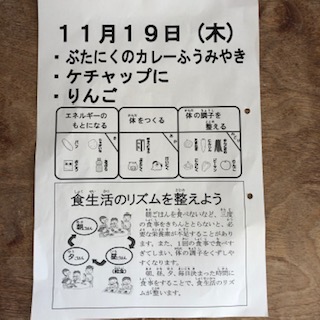 11月19日（木）
・ぶたにくのカレーふうみやき
・ケチャップに
・りんご
エネルギーの
もとになる
体をつくる
体の調子を
整える
食生活のリズムを整えよう
朝ごはん
昼ごはん
(給食)
夕ごはん
朝ごはんを食べないなど、三度
の食事をきちんととらないと、必
要な栄養素が不足することがあり
ます。また、1回の食事で食べす
ぎてしまい、体の調子をくずしや
すくなります。
朝、昼、夕、毎日決まった時間に
食事をすることで、食生活のリズ
ムが整います。